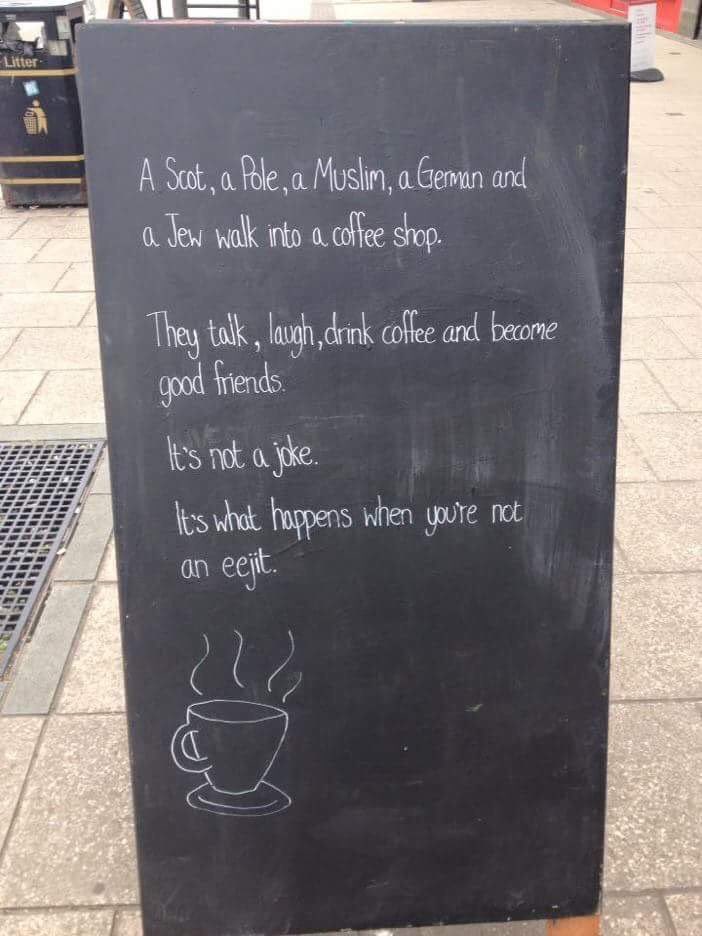 Litter
A Scot, a Pole, a Muslim, a German and
a Jew walk into a coffee shop.
They talk, laugh, drink coffee and become
good friends.
It's not a joke.
It's what happens when you're not
an eejit.